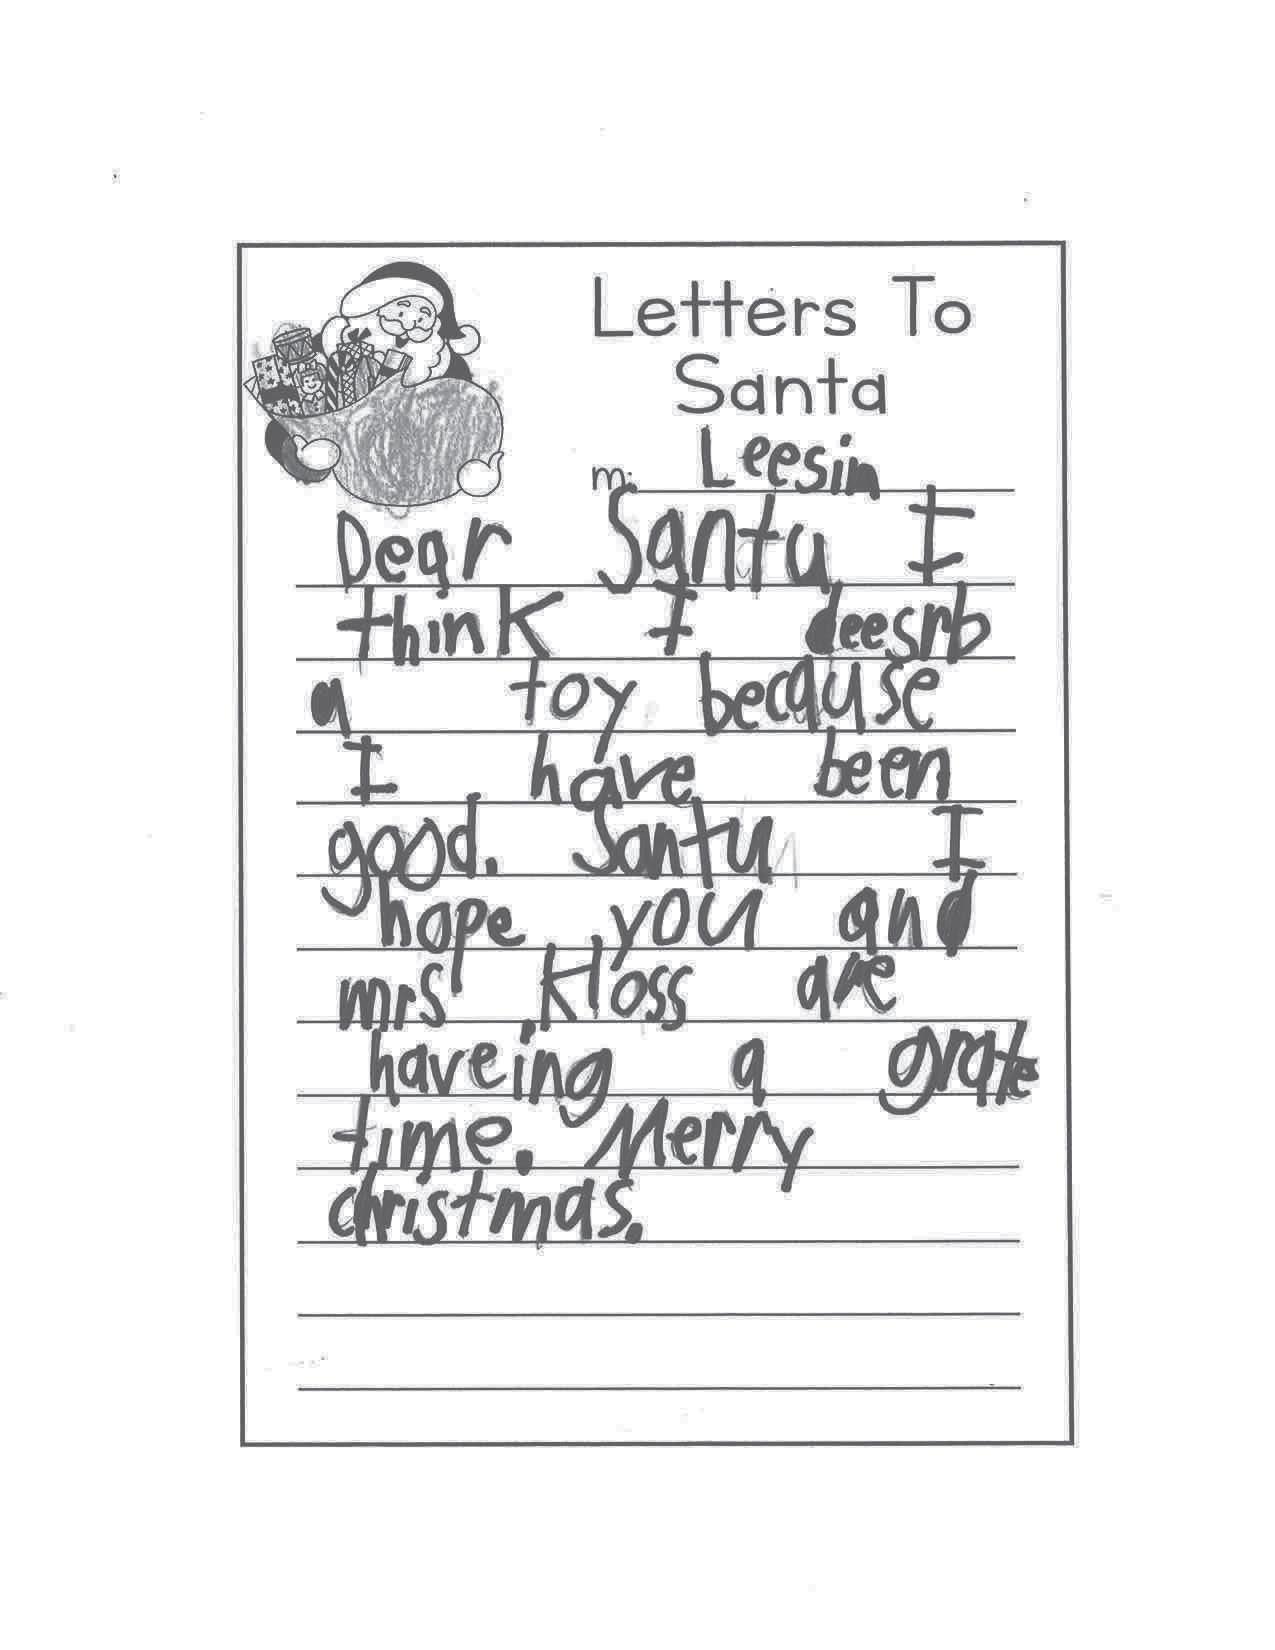 Letters To
Santa
m: Leesin
Dear Santu I
think I deesrb
a toy because
I have been
good. Santu I
hope you and
mrs Kloss are
haveing a grate
time. Merry
christmas.